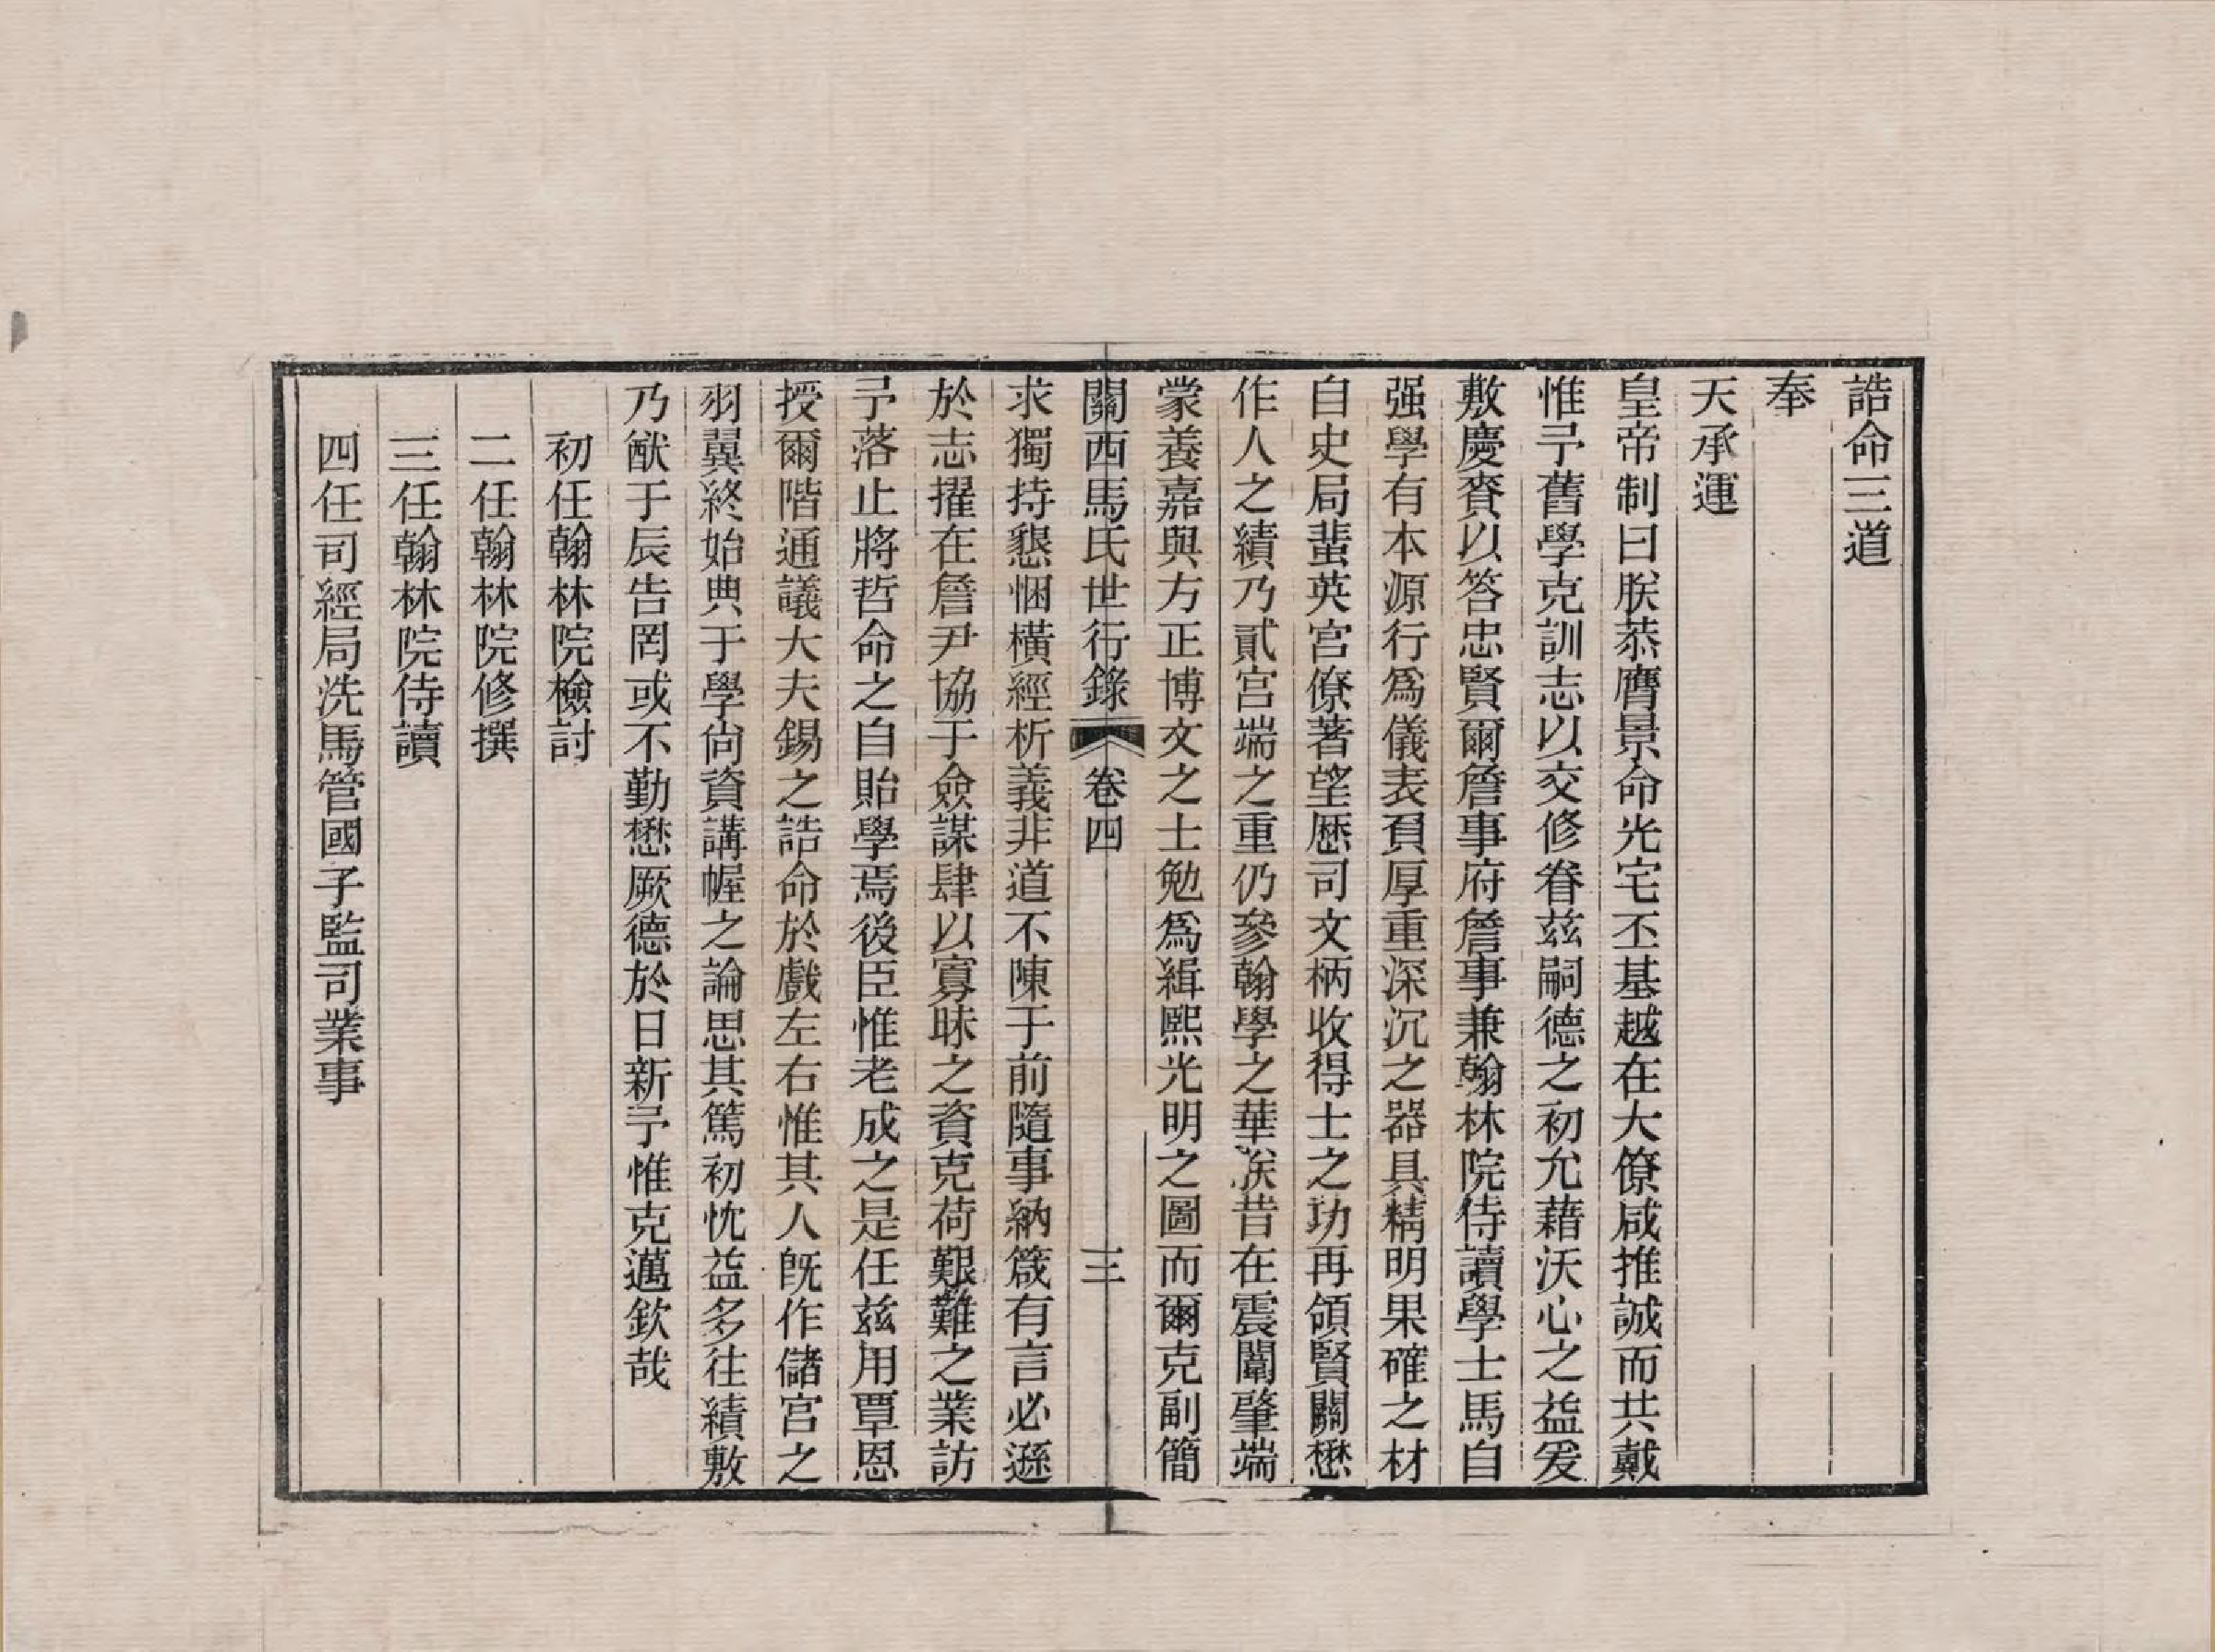 誥命三道
奉
天承運
皇帝制曰朕恭膺景命光宅丕基越在大僚咸推誠而共戴
惟予舊學克訓志以交修眷玆嗣德之初允藉沃心之益爰
敷慶賚以答忠賢爾詹事府詹事兼翰林院侍讀學士馬自
强學有本源行爲儀表負厚重深沉之器具精明果確之材
自史局蜚英宮僚著望歷司文柄收得士之功再領賢關懋
作人之績乃貳宮端之重仍參翰學之華朕昔在震闈肇端
蒙養嘉與方正博文之士勉爲緝熙光明之圖而爾克副簡
關西馬氏世行錄 卷四 三
求獨持懇悃橫經析義非道不陳于前隨事納箴有言必遜
於志擢在詹尹協于僉謀肆以寡昧之資克荷艱難之業訪
予落止將哲命之自貽學焉後臣惟老成之是任玆用覃恩
授爾階通議大夫錫之誥命於戲左右惟其人旣作儲宮之
羽翼終始典于學尙資講幄之論思其篤初忱益多往績敷
乃猷于辰告罔或不勤懋厥德於日新予惟克邁欽哉
初任翰林院檢討
二任翰林院修撰
三任翰林院侍讀
四任司經局洗馬管國子監司業事